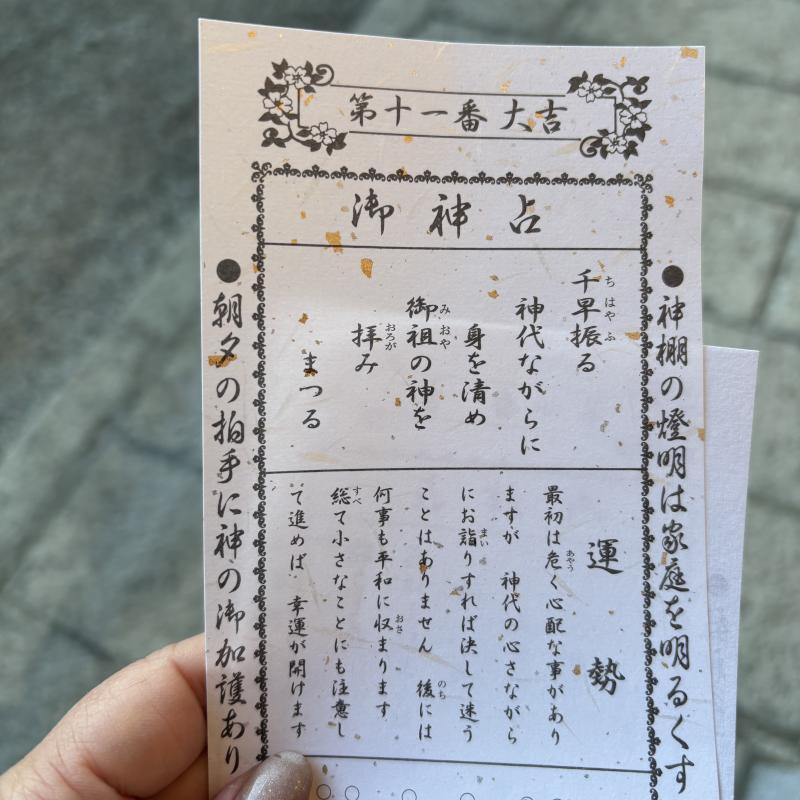 第十一番 大吉
御神占
●神棚の燈明は家庭を明るくす
千早振る
ちはやふ
神代ながらに
身を清め
御祖の神を
みおや
拝み
おろが
まつる
運勢
最初は危く心配な事があり
あやう
ますが 神代の心さながら
にお詣りすれば決して迷う
まい
ことはありません 後には
のち
何事も平和に収まります
おさ
総て小さなことにも注意し
すべ
て進めば 幸運が開けます
●朝夕の拍手に神の御加護あり